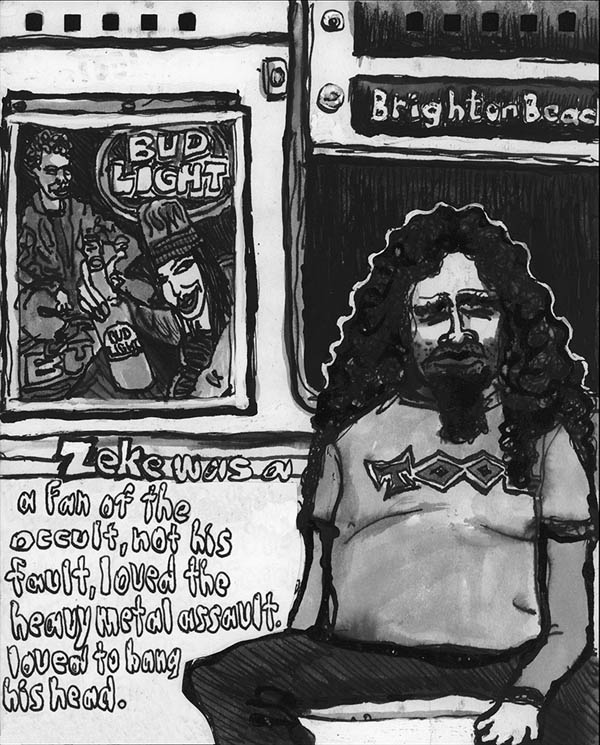 BUD
LIGHT
BUD
LIGHT
Brighton Beac
TOOL
Zeke was a
a fan of the
occult, not his
fault, loved the
heavy metal assault.
loved to bang
his head.